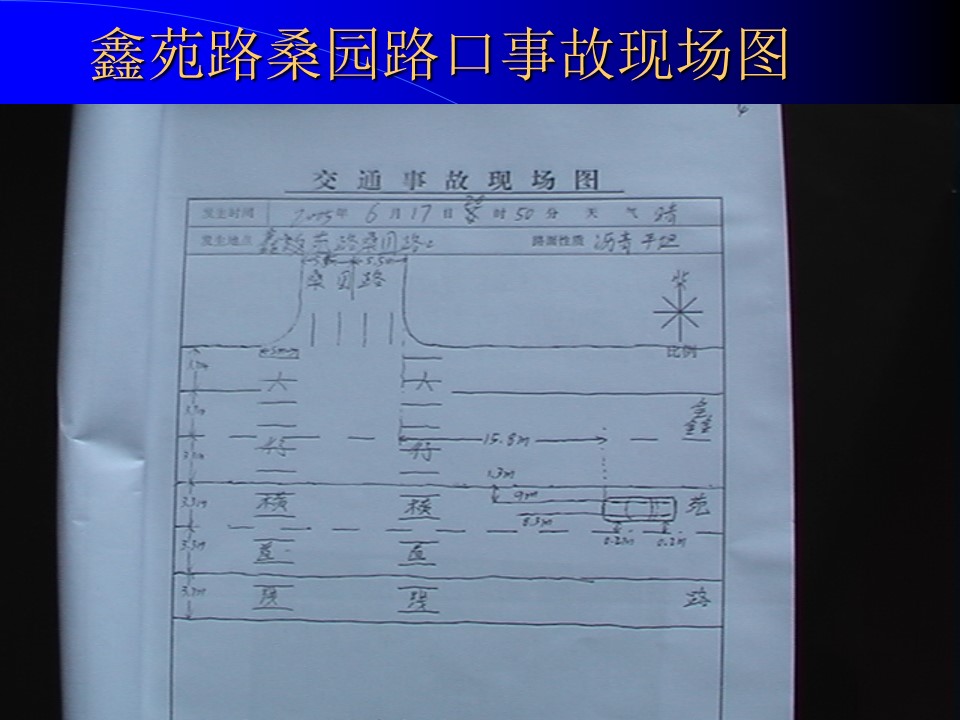 鑫苑路桑园路口事故现场图
交通事故现场图
发生时间 2005年 6月17日 20时50分 天气 晴
发生地点 鑫苑路桑园路口 路面性质 沥青平坦
5.5m
桑园路
北
比例
5m
人 人
3.3m
鑫
行 行
15.8m
1.3m
横 横
9m
苑
3.3m
8.3m
0.2m 0.2m
3.3m
道 道
3.3m
线 线
路